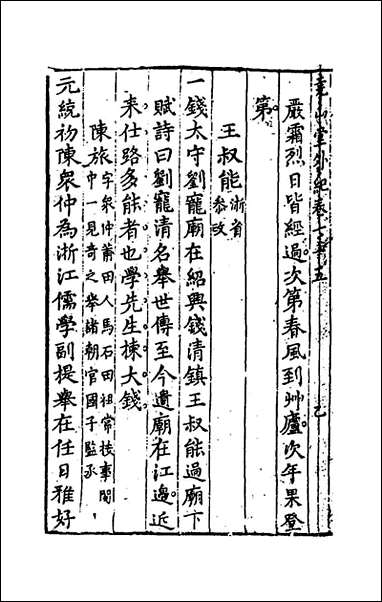 堯山堂外紀卷七十五
乙
嚴霜烈日皆經過次第春風到艸廬次年果登
第
王叔能浙省參政
一錢太守劉寵廟在紹興錢清鎮王叔能過廟下
賦詩曰劉寵清名舉世傳至今遺廟在江邊近
来仕路多能者也學先生揀大錢
陳旅字衆仲莆田人馬石田祖常按事閩
中一見奇之舉諸朝官國子監丞
元統初陳衆仲為浙江儒學副提舉在任日雅好